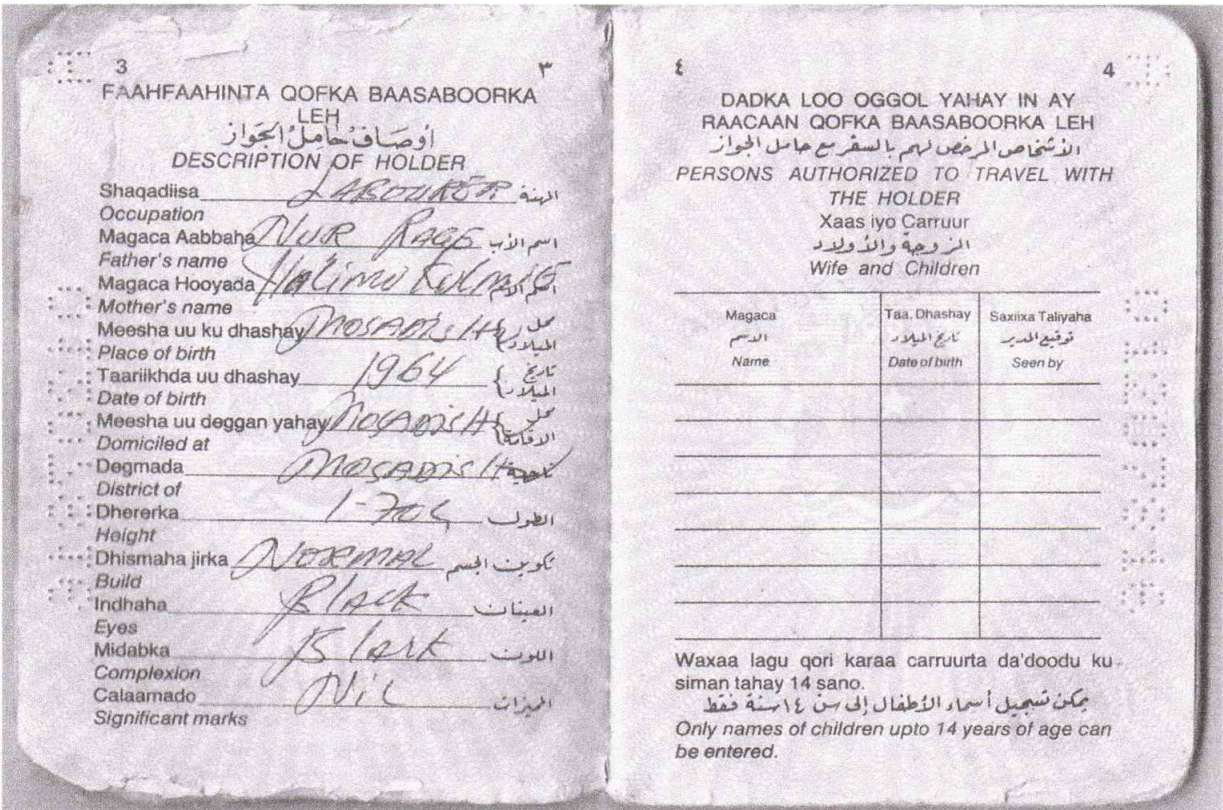 3 ٣
FAAHFAAHINTA QOFKA BAASABOORKA
LEH
أوصاف حامل الجواز
DESCRIPTION OF HOLDER
Shaqadiisa LABOURER المهنة
Occupation
Magaca Aabbaha NUR RAGE اسم الأب
Father's name
Magaca Hooyada Halimo اسم الأم
Mother's name
Meesha uu ku dhashay MOGADISH محل الميلاد
Place of birth
Taariikhda uu dhashay 1964 تاريخ الميلاد
Date of birth
Meesha uu deggan yahay MOGADISH محل الاقامة
Domiciled at
Degmada MOGADISH ناحية
District of
Dhererka الطول
Height
Dhismaha jirka NORMAL تكوين الجسم
Build
Indhaha Black العينان
Eyes
Midabka Black اللون
Complexion
Calaamado Nil الميزات
Significant marks
٤ 4
DADKA LOO OGGOL YAHAY IN AY
RAACAAN QOFKA BAASABOORKA LEH
الأشخاص المرخص لهم بالسفر مع حامل الجواز
PERSONS AUTHORIZED TO TRAVEL WITH
THE HOLDER
Xaas iyo Carruur
الزوجة والأولاد
Wife and Children
Magaca Taa. Dhashay Saxiixa Taliyaha
الاسم تاريخ الميلاد توقيع المدير
Name Date of birth Seen by
Waxaa lagu qori karaa carruurta da'doodu ku
siman tahay 14 sano.
يمكن تسجيل أسماء الأطفال إلى سن ١٤ سنة فقط
Only names of children upto 14 years of age can
be entered.